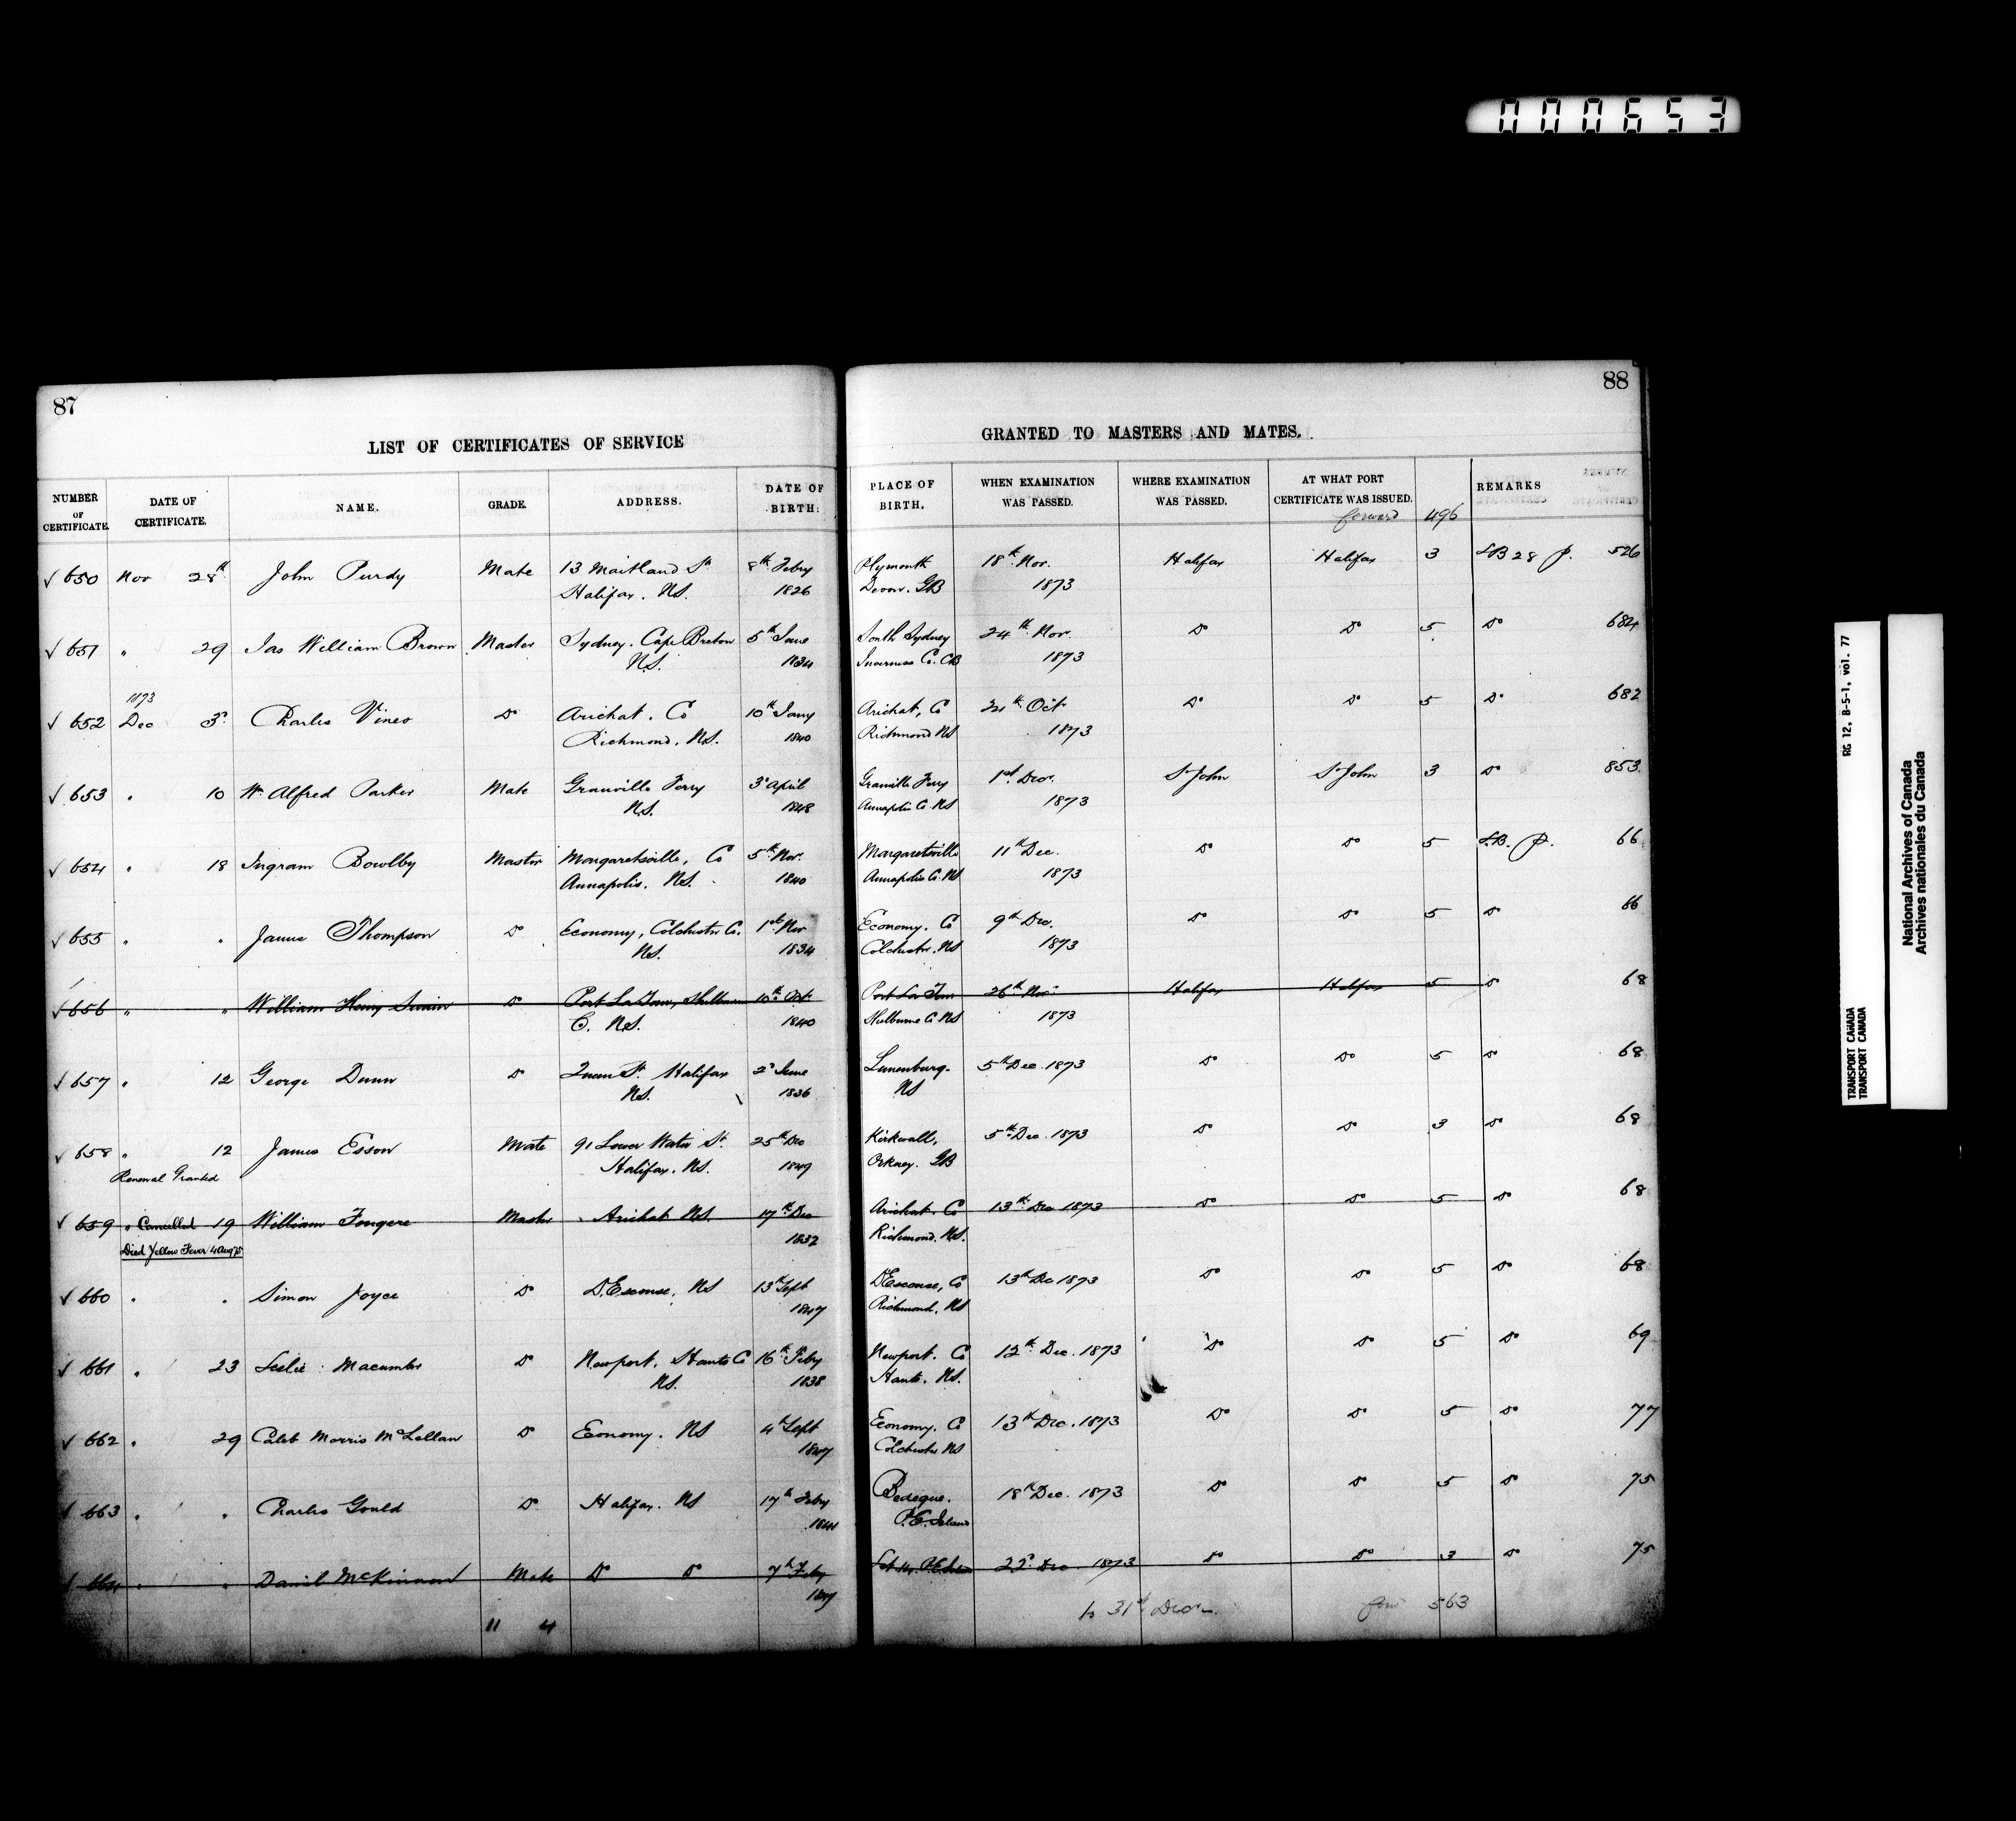 000653
87
LIST OF CERTIFICATES OF SERVICE
NUMBER OF CERTIFICATE. DATE OF CERTIFICATE. NAME. GRADE. ADDRESS. DATE OF BIRTH.
✓ 650 Nov 28th John Purdy Mate 13 Maitland St 8th Feby
Halifax. NS. 1826
✓ 651 " 29 Jas William Brown Master Sydney. Cape Breton 5th June
NS. 1834
1873
✓ 652 Dec 3d Charles Vineo Do Arichat. Co 10th Jany
Richmond. NS. 1840
✓ 653 " 10 Wm Alfred Parker Mate Granville Ferry 3d April
NS. 1848
✓ 654 " 18 Ingram Bowlby Master Margaretsville, Co 5th Nov.
Annapolis. NS. 1840
✓ 655 " " James Thompson Do Economy, Colchester Co. 1st Nov
NS. 1834
✓ 656 " " William Henry Do Port La Tour, Shelburne 10th Oct
C. NS. 1840
✓ 657 " 12 George Dunn Do Queen St. Halifax 2d June
NS. 1836
✓ 658 " 12 James Esson Mate 91 Lower Water St. 25th Dec
Renewal Granted Halifax. NS. 1849
✓ 659 " Cancelled 19 William Fougere Master Arichat NS. 17th Dec
Died Yellow Fever 4 Aug 75 1832
✓ 660 " " Simon Joyce Do D'Escouse, NS 13th Sept
1847
✓ 661 " 23 Leslie Macumber Do Newport, Hants Co 16th Feby
NS. 1838
✓ 662 " 29 Caleb Morris McLellan Do Economy. NS 4th Sept
1847
663 " " Charles Gould Do Halifax. NS 17th Feby
1841
664 " " Daniel McKinnon Mate Do Do 7th Feby
11 4
88
GRANTED TO MASTERS AND MATES.
PLACE OF BIRTH. WHEN EXAMINATION WAS PASSED. WHERE EXAMINATION WAS PASSED. AT WHAT PORT CERTIFICATE WAS ISSUED. REMARKS
forward 496
Plymouth 18th Nov. Halifax Halifax 3 28 526
Devon. GB 1873
South Sydney 24th Nov. Do Do 5 Do 684
Inverness Co. CB 1873
Arichat, Co Oct Do Do 5 Do 682
Richmond NS 1873
Granville Ferry 1st Decr. St John St John 3 Do 853
Annapolis Co NS 1873
Margaretsville 11th Dec. Do Do 5 66
Annapolis Co. NS 1873
Economy. Co 9th Dec. Do Do 5 Do 66
Colchester. NS 1873
Port La Tour 26th Nov. Halifax Halifax 5 Do 68
Shelburne Co NS 1873
Lunenburg. 5th Dec. 1873 Do Do 5 Do 68
NS
Kirkwall, 5th Dec. 1873 Do Do 3 Do 68
Orkney. GB
Arichat. Co 13th Dec 1873 Do Do 5 Do 68
Richmond. NS.
D'Escouse, Co 13th Dec 1873 Do Do 5 Do 68
Richmond. NS
Newport. Co 12th Dec. 1873 Do Do 5 Do 69
Hants. NS.
Economy. Co 13th Dec. 1873 Do Do 5 Do 77
Colchester NS
Bedeque. 18th Dec. 1873 Do Do 5 Do 75
P.E. Island
22d Dec 1873 Do Do 3 Do 75
to 31st Decr. 563
RG 12, B-5-1, vol. 77
TRANSPORT CANADA
TRANSPORT CANADA
National Archives of Canada
Archives nationales du Canada